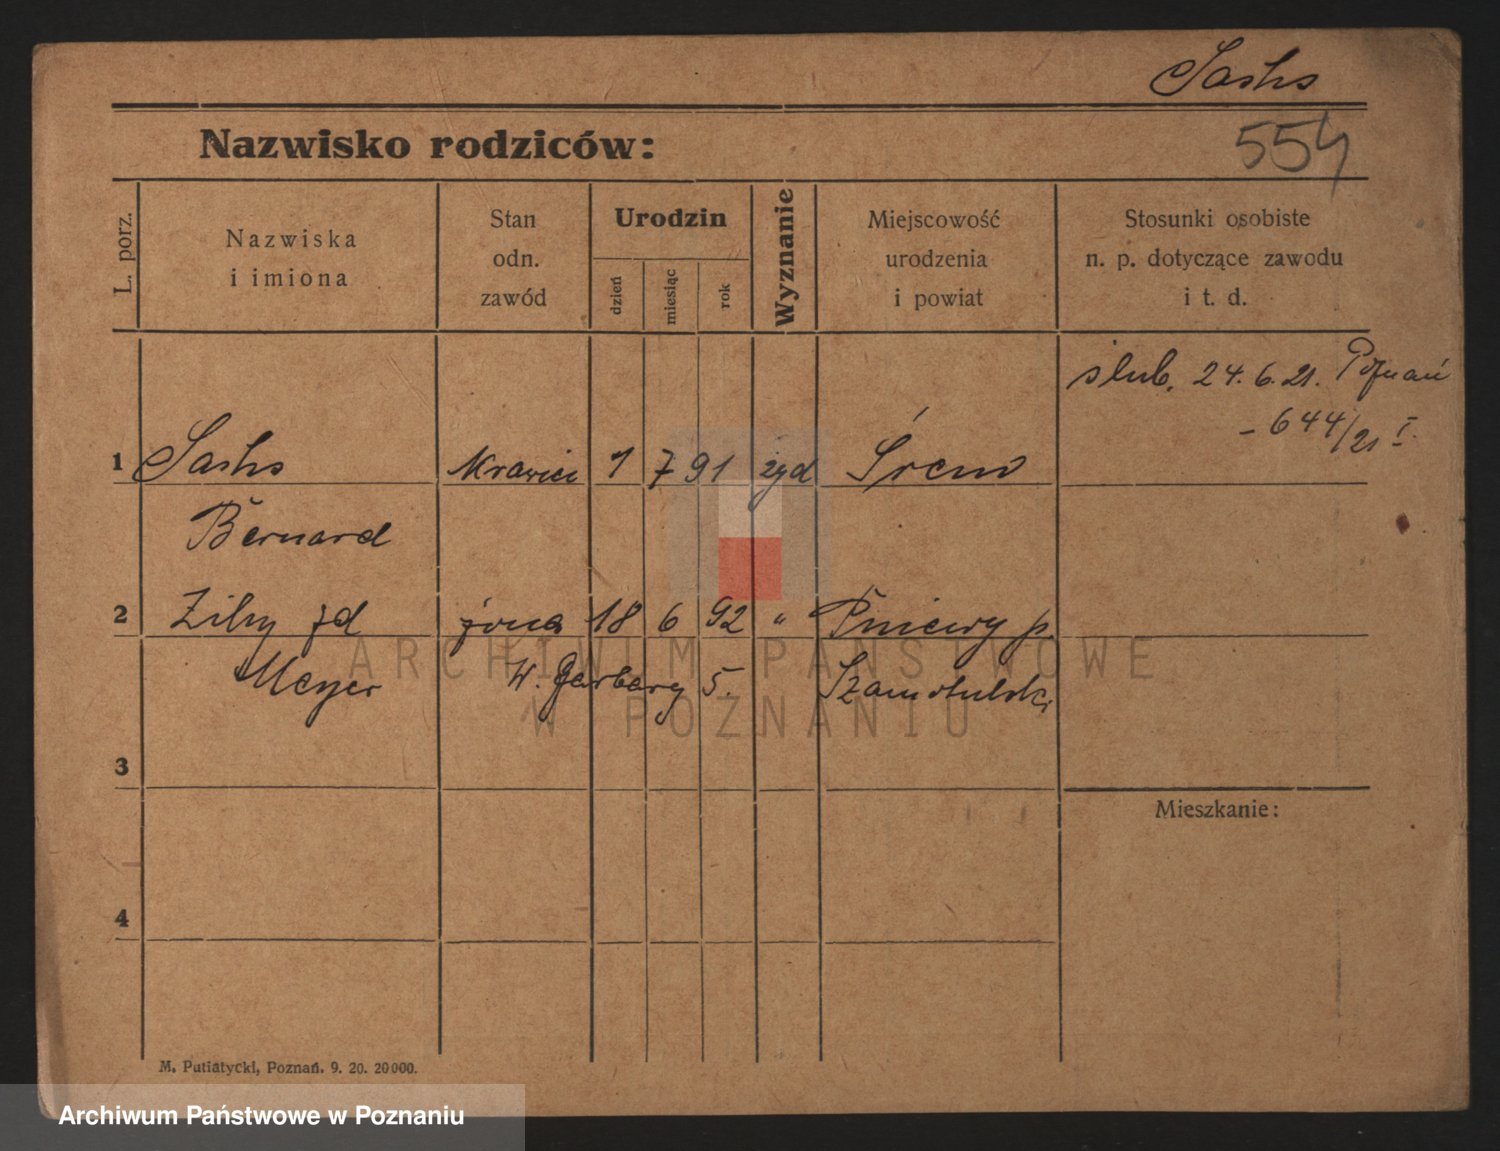 Sachs
554
Nazwisko rodziców:
L. porz.
Nazwiska
i imiona
Stan
odn.
zawód
Urodzin
dzień
miesiąc
rok
Wyznanie
Miejscowość
urodzenia
i powiat
Stosunki osobiste
n. p. dotyczące zawodu
i t. d.
ślub. 24.6.21. Poznań
- 644/21 I.
1 Sachs krawiec 1 7 91 żyd Śrem
Bernard
2 żd żona 18 6 92 " Pniewy p.
Meyer W. Garbary 5. Szamotulski
3
Mieszkanie:
4
M. Putiatycki, Poznań. 9. 20. 20000.
ARCHIWUM PAŃSTWOWE
W POZNANIU
Archiwum Państwowe w Poznaniu